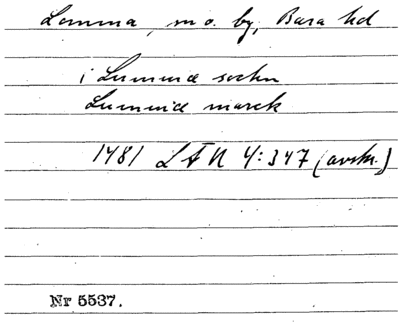 Lomma, sn o. by, Bara hd
i Lummæ sockn
Lummæ marck
1481 LÄU 4:347 (avskr.)
Nr 5537.